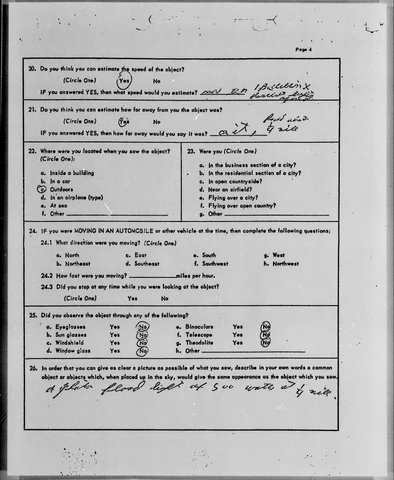 Page 4
20. Do you think you can estimate the speed of the object?
(Circle One) Yes No
IF you answered YES, then what speed would you estimate?
21. Do you think you can estimate how far away from you the object was?
(Circle One) Yes No
IF you answered YES, then how far away would you say it was? 1/4 mile
22. Where were you located when you saw the object?
(Circle One):
a. Inside a building
b. In a car
c. Outdoors
d. In an airplane (type)
e. At sea
f. Other
23. Were you (Circle One)
a. In the business section of a city?
b. In the residential section of a city?
c. In open countryside?
d. Near an airfield?
e. Flying over a city?
f. Flying over open country?
g. Other
24. IF you were MOVING IN AN AUTOMOBILE or other vehicle at the time, then complete the following questions:
24.1 What direction were you moving? (Circle One)
a. North c. East e. South g. West
b. Northeast d. Southeast f. Southwest h. Northwest
24.2 How fast were you moving? miles per hour.
24.3 Did you stop at any time while you were looking at the object?
(Circle One) Yes No
25. Did you observe the object through any of the following?
a. Eyeglasses Yes No e. Binoculars Yes No
b. Sun glasses Yes No f. Telescope Yes No
c. Windshield Yes No g. Theodolite Yes No
d. Window glass Yes No h. Other
26. In order that you can give as clear a picture as possible of what you saw, describe in your own words a common
object or objects which, when placed up in the sky, would give the same appearance as the object which you saw.
flood light of 500 watts at 1/4 mile.